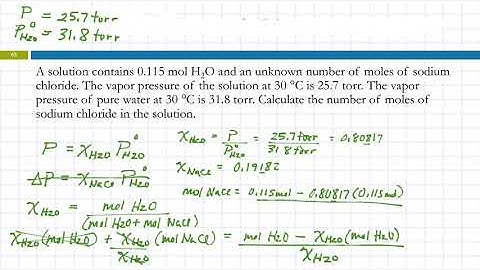 P = 25.7 torr
P°H₂O = 31.8 torr
A solution contains 0.115 mol H₂O and an unknown number of moles of sodium
chloride. The vapor pressure of the solution at 30 °C is 25.7 torr. The vapor
pressure of pure water at 30 °C is 31.8 torr. Calculate the number of moles of
sodium chloride in the solution.
P = χH₂O P°H₂O
χH₂O = P/P°H₂O = 25.7 torr/31.8 torr = 0.80817
ΔP = χNaCl P°H₂O
χNaCl = 0.19182
mol NaCl = 0.115 mol − 0.80817 (0.115 mol)
χH₂O = mol H₂O/(mol H₂O + mol NaCl)
χH₂O (mol H₂O) + χH₂O (mol NaCl)/χH₂O = mol H₂O − χH₂O (mol H₂O)/χH₂O